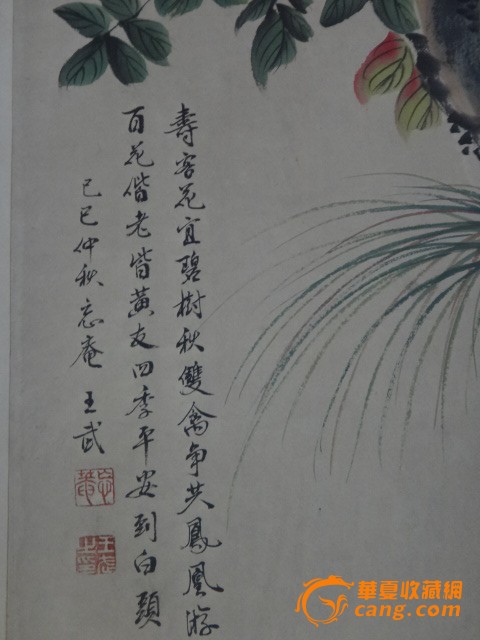 壽客花宜碧樹秋雙禽爭共鳳凰游
百花偕老皆黃友四季平安到白頭
己巳仲秋忘庵王武
華夏收藏網
cang.com